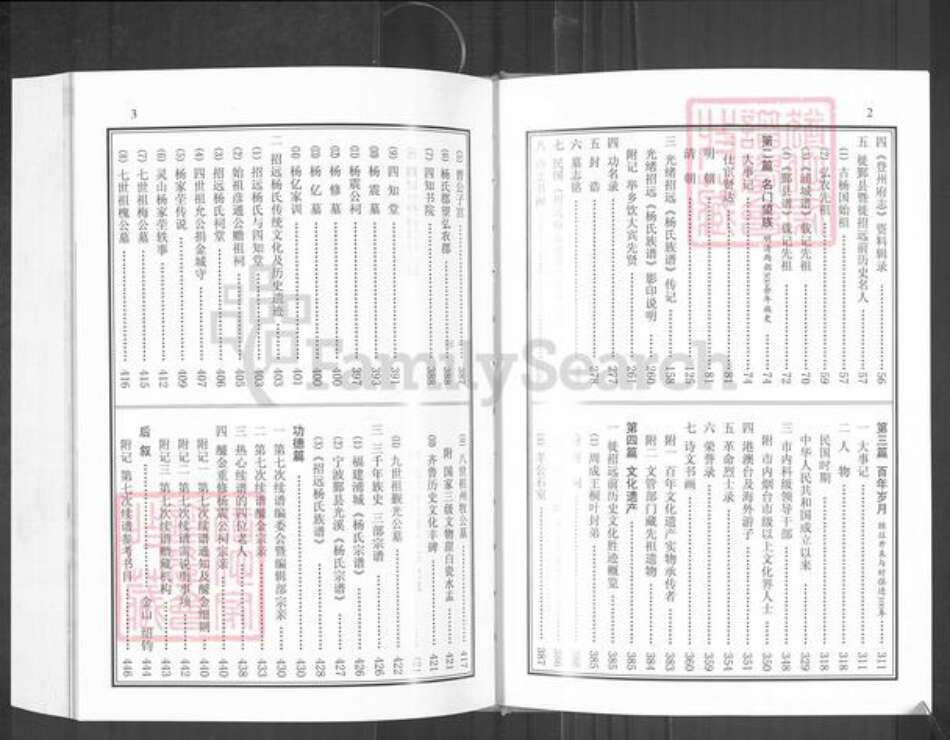 2
四 《登州府志》资料辑录 56
五 徙鄞县暨徙招远前历史名人 57
(1) 古杨国始祖 57
(2) 弘农先祖 59
(3) 载记先祖 70
(4) 《鄞县谱》载记先祖 72
第二篇 名门望族 74
大事记 74
仕宦贤达 81
明 朝 81
清 朝 125
三 光绪招远《杨氏族谱》传记 158
光绪招远《杨氏族谱》影印说明 260
附记 举乡饮大宾先贤 261
四 功名录 277
五 封 诰 278
六 墓志铭
第三篇 百年岁月 311
一 大事记 311
二 人 物 318
民国时期 318
中华人民共和国成立以来 329
三 市内科级领导干部 348
附 市内烟台市级以上文化界人士 350
四 港澳台及海外游子 351
五 革命烈士录 354
六 荣誉录 359
七 诗文书画 360
附一 百年文化遗产实物承传者 383
附二 文管部门藏先祖遗物 384
第四篇 文化遗产 385
一 徙招远前历史文化胜迹概览 385
(1) 周成王桐叶封弟 385
(2) 羊公石室 387
3
(5) 晋公子宫 387
(6) 杨氏郡望弘农郡 388
(7) 四知书院 388
(8) 四 知 堂 391
(9) 杨 震 墓 393
(10) 杨震公祠 397
(11) 杨 修 墓 400
(12) 杨 亿 墓 400
(13) 杨亿家训 401
二 招远杨氏传统文化及历史遗迹 403
(1) 招远杨氏与四知堂 403
(2) 始祖彦通公瞻祖祠 405
(3) 招远杨氏祠堂 406
(4) 四世祖允公捐金城守 407
(5) 杨家茔传说 409
(6) 灵山杨家茔轶事 412
(7) 七世祖梅公墓 415
(8) 七世祖槐公墓 416
(9) 八世祖州牧公墓 417
附 国家三级文物甜白瓷水盂 421
(10) 齐鲁历史文化丰碑 421
(11) 九世祖观光公墓 422
三 三千年族史 三部宗谱 426
(1) 福建浦城《杨氏宗谱》 426
(2) 宁波鄞县光溪《杨氏宗谱》 427
(3) 《招远杨氏族谱》 428
功德篇 430
一 第七次续谱编委会暨编辑部宗亲 430
二 第七次续谱醵金宗亲 433
三 热心续谱的四位老人 438
四 醵金重修杨震公祠宗亲 440
附记一 第七次续谱通知及醵金细则 440
附记二 第七次续谱需说明事项 442
附记三 第七次续谱赠藏机构 443
后 叙 444
附记 第七次续谱参考书目 446
FamilySearch